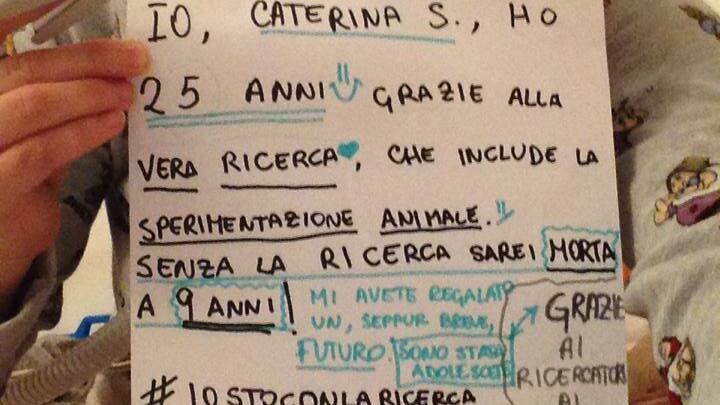 IO, CATERINA S., HO
25 ANNI GRAZIE ALLA
VERA RICERCA, CHE INCLUDE LA
SPERIMENTAZIONE ANIMALE.
SENZA LA RICERCA SAREI MORTA
A 9 ANNI!
MI AVETE REGALATO
UN, SEPPUR BREVE,
FUTURO. SONO STATA
ADOLESCENTE
GRAZIE
AI
RICERCATORI
AI
#IOSTOCONLARICERCA